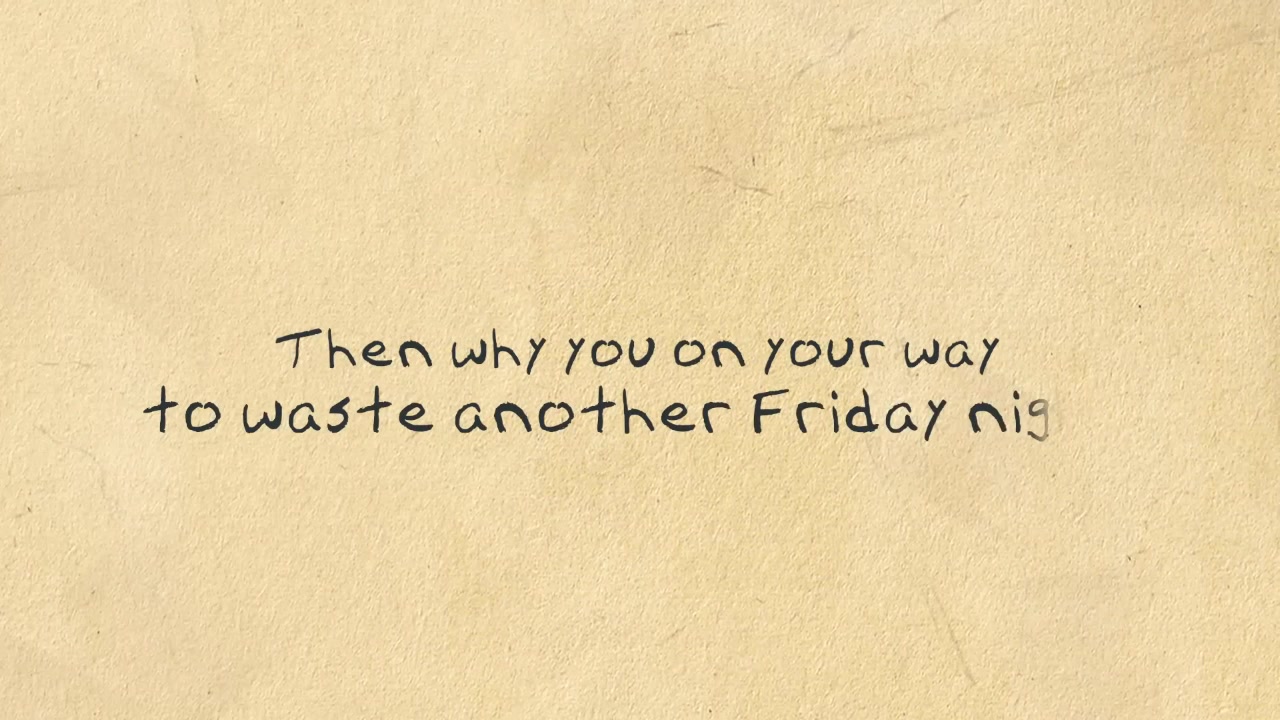 Then why you on your way
to waste another Friday nig